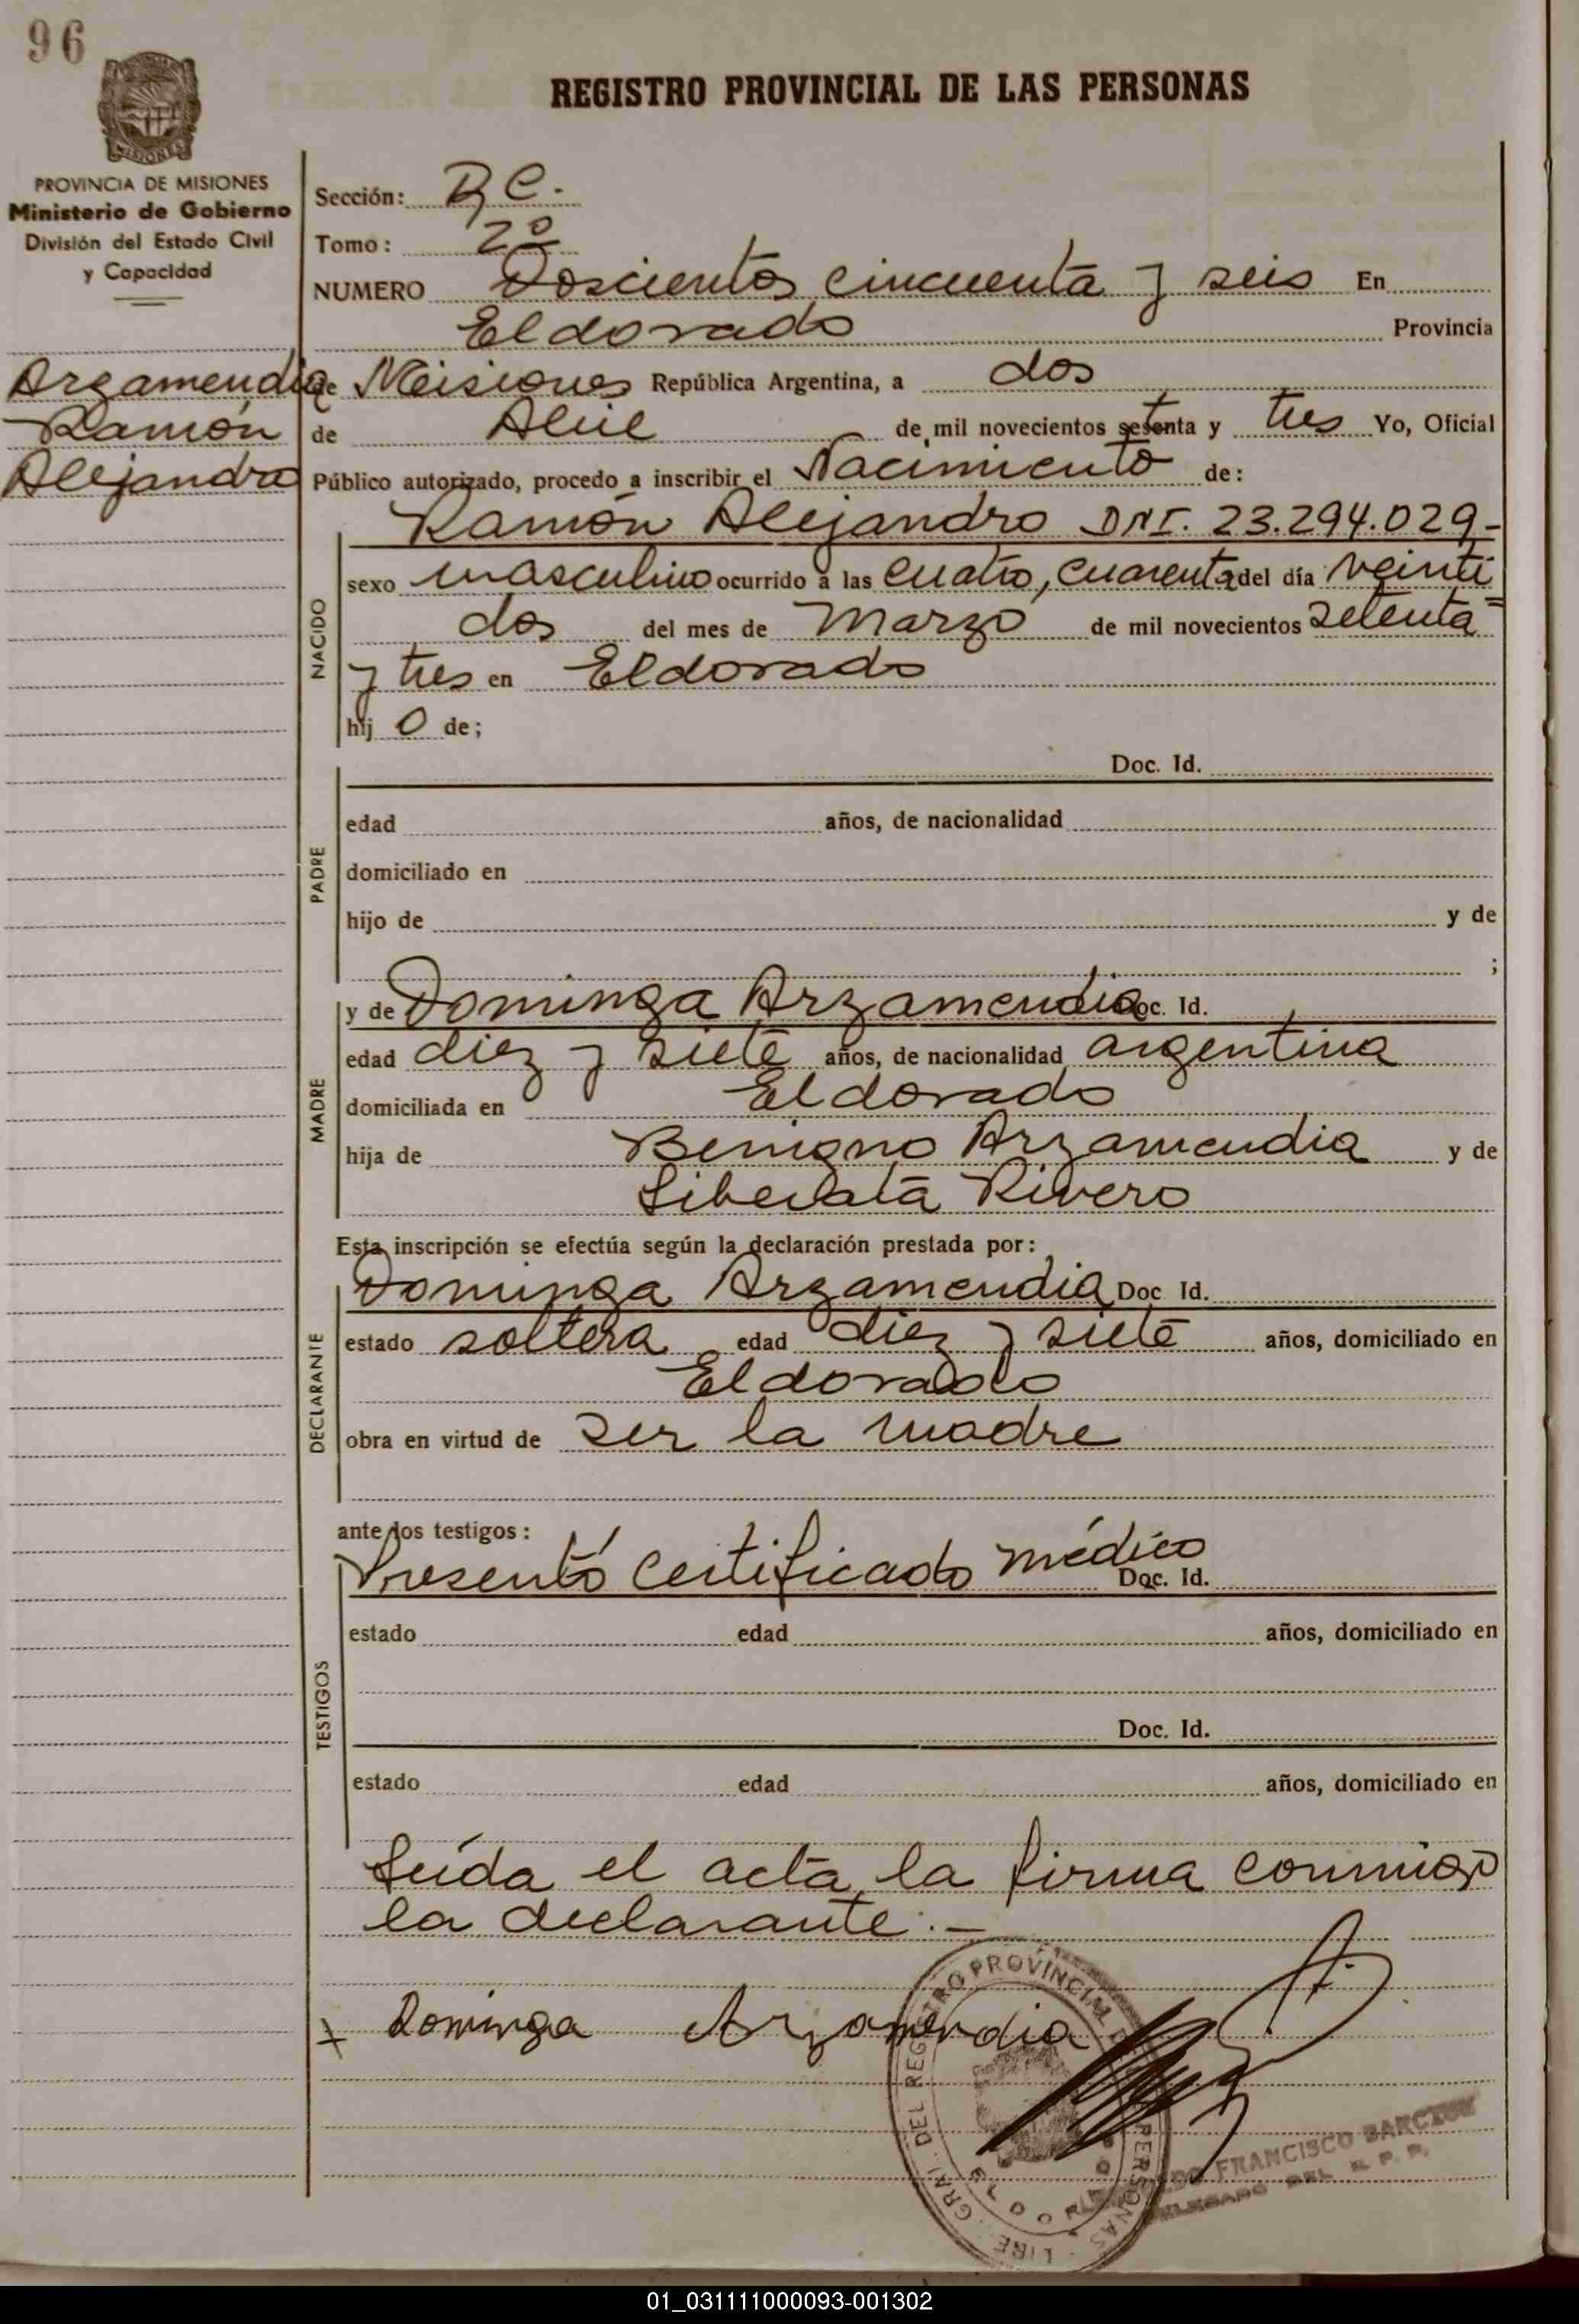 96
MISIONES
REGISTRO PROVINCIAL DE LAS PERSONAS
PROVINCIA DE MISIONES
Ministerio de Gobierno
División del Estado Civil
y Capacidad
Arzamendia
Ramón
Alejandro
Sección:
Tomo: 2º
NUMERO Doscientos cincuenta y seis En
Eldorado Provincia
de Misiones República Argentina, a dos
de Abril de mil novecientos setenta y tres Yo, Oficial
Público autorizado, procedo a inscribir el Nacimiento de:
NACIDO
Ramón Alejandro DNI. 23.294.029-
sexo masculino ocurrido a las cuatro, cuarenta del día veinti
dos del mes de Marzo de mil novecientos setenta=
y tres en Eldorado
hij o de;
PADRE
Doc. Id.
edad años, de nacionalidad
domiciliado en
hijo de y de
;
MADRE
y de Dominga Arzamendia Doc. Id.
edad diez y siete años, de nacionalidad argentina
domiciliada en Eldorado
hija de Benigno Arzamendia y de
Liberata Rivero
Esta inscripción se efectúa según la declaración prestada por:
DECLARANTE
Dominga Arzamendia Doc Id.
estado soltera edad diez y siete años, domiciliado en
Eldorado
obra en virtud de ser la madre
ante los testigos:
TESTIGOS
Presentó certificado médico Doc. Id.
estado edad años, domiciliado en
Doc. Id.
estado edad años, domiciliado en
Leída el acta, la firma conmigo
la declarante.-
x Dominga Arzamendia
DEL REGISTRO PROVINCIAL DE LAS PERSONAS
FRANCISCO
DEL R. P. P.
01_031111000093-001302